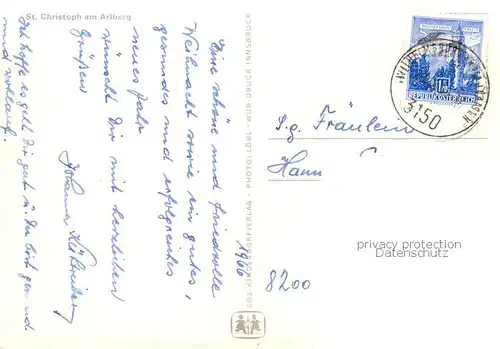 St. Christoph am Arlberg
Eine schöne und friedvolle
Weihnacht sowie ein gutes,
gesundes und erfolgreiches
neues Jahr
wünscht Dir mit herzlichen
Grüßen
Johanna
Ich hoffe es geht Dir gut u. Du bist gesund
und wohlauf.
1966
SOS-KINDERDORFVERLAG - PHOTO: LÖBL - WUB-DRUCK INNSBRUCK
REPUBLIK ÖSTERREICH
3150
S.g. Fräulein
Hann
8200
privacy protection
Datenschutz